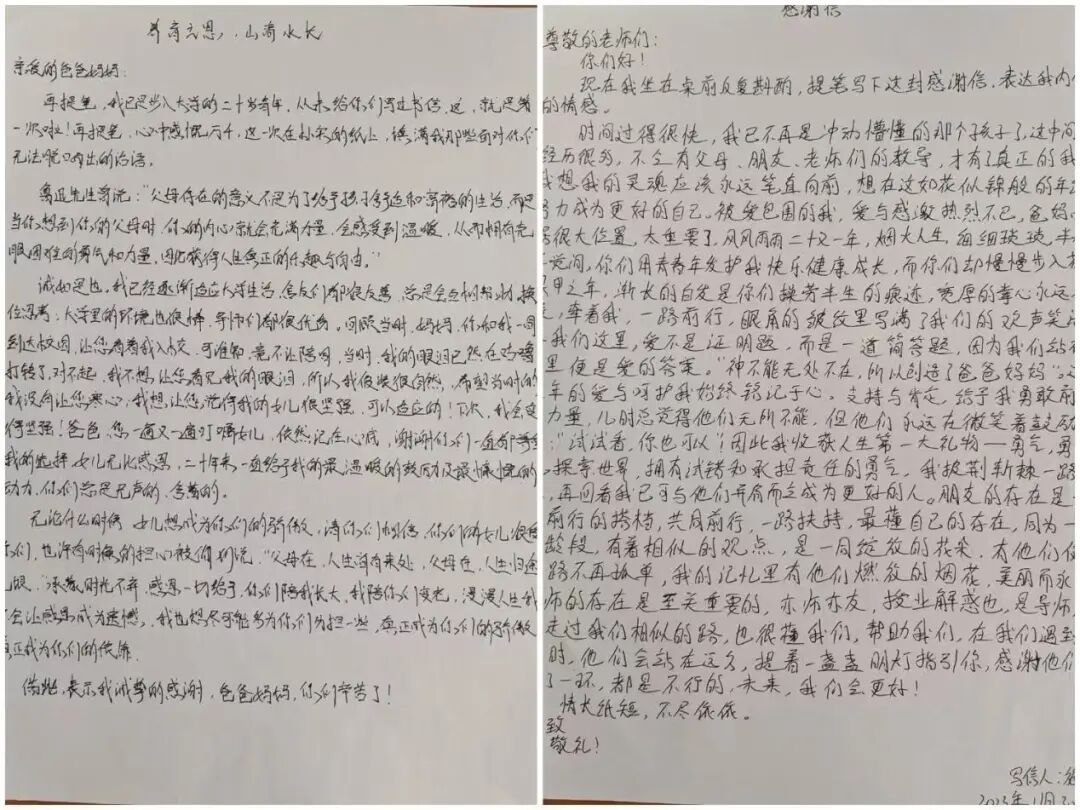 养育之恩，山高水长
亲爱的爸爸妈妈：
再提笔，我已是步入大学的二十岁青年，从未给你们写过书信，这，就是第
一次啦！再提笔，心中感慨万千，这一次在小小的纸上，填满我那些面对你们
无法脱口而出的话语。
鲁迅先生曾说："父母存在的意义不是为了给予孩子舒适和富裕的生活，而是
当你想到你的父母时，你的内心就会充满力量，会感受到温暖，从而拥有克
服困难的勇气和力量，因此获得人生真正的乐趣与自由。"
诚如是也，我已经逐渐适应大学生活，舍友们都很友善，总是会互相帮助，换
位思考；大学里的环境也很棒，导师们都很优秀。回顾当时，妈妈，你和我一同
到达校园，让您看着我入校，可谁知，竟不让陪同，当时，我的眼泪已然在眼眶
打转了，对不起，我不想让您看见我的眼泪，所以我假装很自然，希望当时的
我没有让您寒心，我想，让您觉得我的女儿很坚强，可以适应的！下次，我会变
得坚强！爸爸，您一遍又一遍叮嘱女儿，依然记在心底，谢谢你们一直都尊重
我的选择，女儿无比感恩，二十年来一直给予我的最温暖的
动力，你们总是无声的，含蓄的。
无论什么时候，女儿想成为你们的骄傲，请你们相信，你们的女儿很爱
你们，也许有时候的担心被 "父母在，人生尚有来处，父母去，人生只剩
归 承蒙时光不弃，感恩一切给予，你们陪我长大，我陪你们变老，漫漫人生我
会让感恩成为遗憾，我也想尽可能多为你们分担一些，真正成为你们的骄傲
真正成为你们的依靠。
借此，表示我诚挚的感谢，爸爸妈妈，你们辛苦了！
感谢信
尊敬的老师们：
你们好！
现在我坐在桌前反复斟酌，提笔写下这封感谢信，表达我内心
的情感。
时间过得很快，我已不再是冲动懵懂的那个孩子了，这中间
经历很多，不会有父母、朋友、老师们的教导，才有了真正的我
我想我的灵魂应该永远笔直向前，想在这如花似锦般的年
努力成为更好的自己。被爱包围的我，爱与感激热烈不已，爸妈
很大位置，太重要了，风风雨雨二十又一年，烟火人生，每细琐琐，半
说间，你们用青春年发护我快乐健康成长，而你们却慢慢步入
甲之年，渐长的白发是你们操劳半生的痕迹，宽厚的掌心永远
牵着我，一路前行，眼角的皱纹里写满了我们的欢声笑语
我们这里，爱不是证明题，而是一道简答题，因为我们站
里便是爱的答案。"神不能无处不在，所以创造了爸爸妈妈"。这
年的爱与呵护我始终铭记于心。支持与肯定，给予我勇敢前
力量，儿时总觉得他们无所不能，但他们永远在微笑着鼓励
："试试看，你也可以"！因此我收获人生第一大礼物—勇气，勇
探索世界，拥有试错和承担责任的勇气。我披荆斩棘一路
，再回看我已可与他们并肩而立成为更好的人。朋友的存在是
前行的搭档，共同前行，一路扶持，最懂自己的存在，同为一
龄段，有着相似的观点，是一同绽放的花朵，有他们
路不再孤单，我的记忆里有他们燃放的烟花，美丽而永
师的存在是至关重要的，亦师亦友，授业解惑也，是导师，
走过我们相似的路，也很懂我们，帮助我们，在我们遇到
时，他们会站在远久，提着一盏盏明灯指引你，感谢他们
了一环，都是不行的，未来，我们会更好！
情长纸短，不尽依依。
致
敬礼！
写信人：
2023年11月2